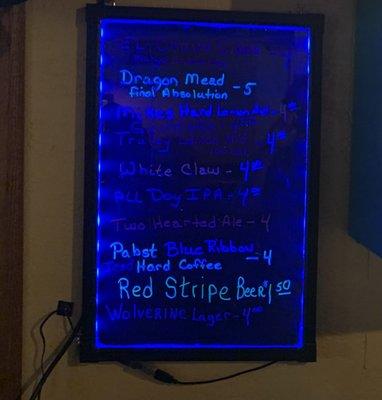 Dragon Mead
Final Absolution - 5
Mikes Hard Lemonade - 4.00
Truly
White Claw - 4.00
All Day IPA - 4.00
Two Hearted Ale - 4
Pabst Blue Ribbon
Hard Coffee - 4
Red Stripe Beer $1.50
Wolverine Lager - 4.00